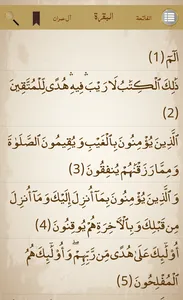 الفاتحة البقرة آل عمران
الٓمٓ (1)
ذَٰلِكَ ٱلْكِتَٰبُ لَا رَيْبَ ۛ فِيهِ ۛ هُدًى لِّلْمُتَّقِينَ
ٱلَّذِينَ يُؤْمِنُونَ بِٱلْغَيْبِ وَيُقِيمُونَ ٱلصَّلَوٰةَ
وَمِمَّا رَزَقْنَٰهُمْ يُنفِقُونَ (3)
وَٱلَّذِينَ يُؤْمِنُونَ بِمَآ أُنزِلَ إِلَيْكَ وَمَآ أُنزِلَ
مِن قَبْلِكَ وَبِٱلْءَاخِرَةِ هُمْ يُوقِنُونَ (4)
أُو۟لَٰٓئِكَ عَلَىٰ هُدًى مِّن رَّبِّهِمْ ۖ وَأُو۟لَٰٓئِكَ هُمُ
ٱلْمُفْلِحُونَ (5)